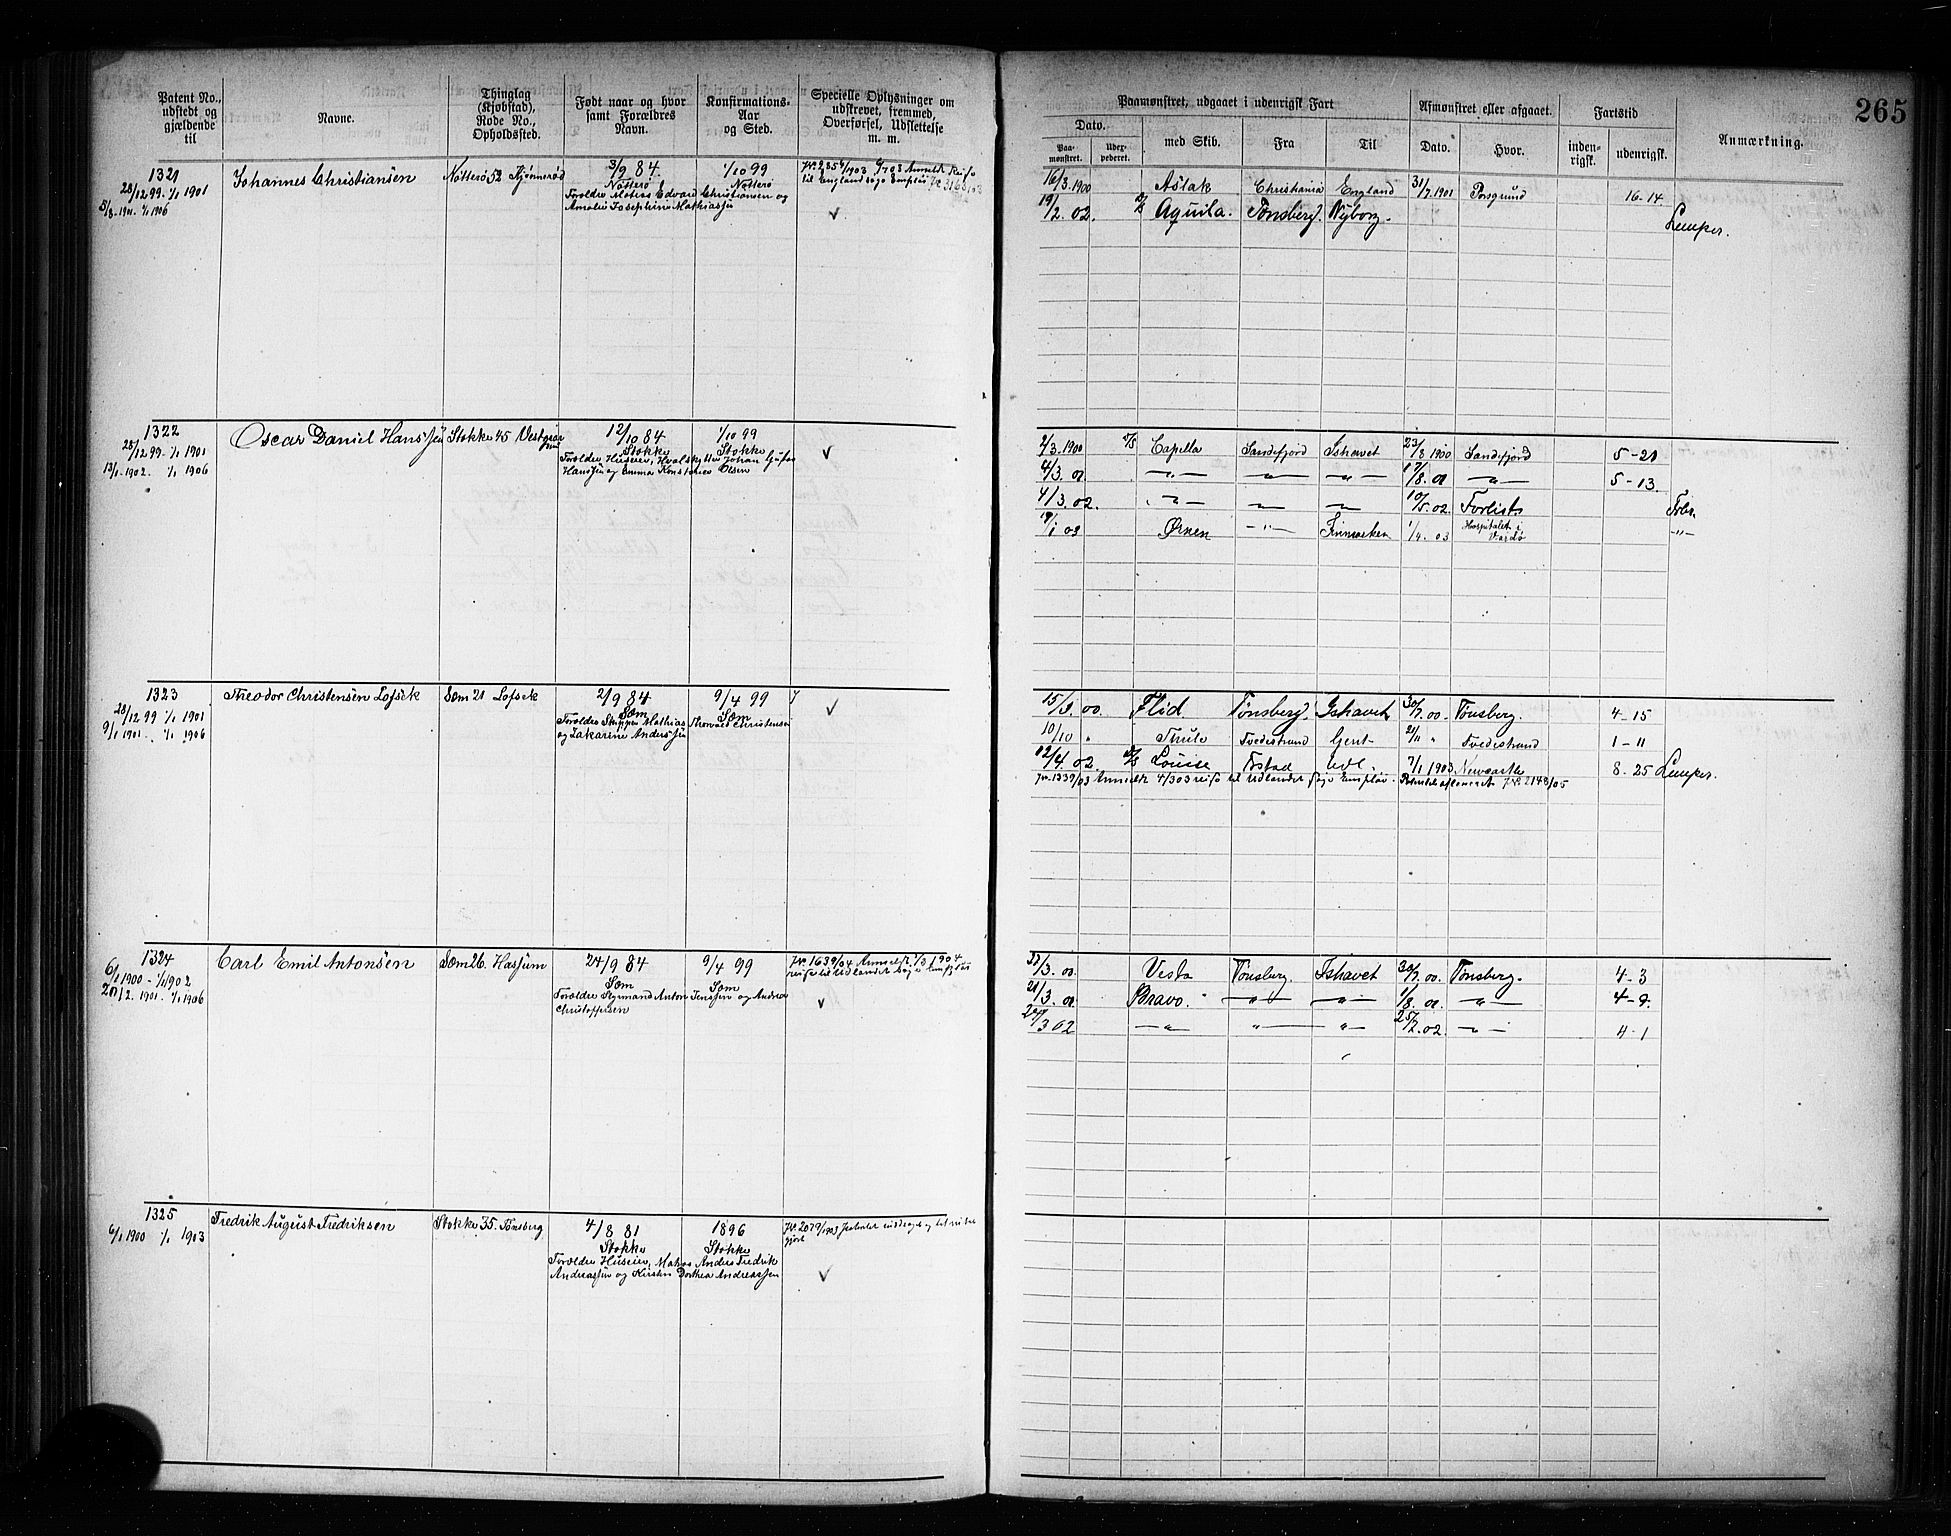 265
Patent No., udstedt og gjældende til
Navne.
Thinglag (Kjøbstad), Rode No., Opholdssted.
Født naar og hvor samt Forældres Navn.
Konfirmations- Aar og Sted.
Specielle Oplysninger om udskrevet, fremmed, Overførsel, Udslettelse m. m.
Paamønstret, udgaaet i udenrigsk Fart
Afmønstret eller afgaaet.
Fartstid
Anmærkning.
Dato.
Paa- mønstret.
Udex- pederet.
med Skib.
Fra
Til
Dato.
Hvor.
inden- rigsk.
udenrigsk.
1321
28/12 99. 1/1 1901
5/8 1901. 1/1 1906
Johannes Christiansen
Nøtterø 52 Kjønnerød
3/9 84.
Nøtterø
Forældre Matros Edvard Christiansen og
Amalie Josephine Mathiasen
1/10 99
Nøtterø
til England søge Employ
16/3 1900 Aslak Christiania England 31/7 1901 Porsgrund 16-14
19/2 02. Aquila. Tønsberg. Nyborg.
Lemper.
1322
28/12 99. 1/1 1901
13/1 1902. 1/1 1906
Oscar Daniel Hanssen
Stokke 45
12/10 84
Stokke
Forældre Huseier, Hvalskytter Johan Gustav
Hanssen og Emma Konstance Olsen
1/10 99
Stokke
2/3 1900 Capella Sandefjord Ishavet 23/8 1900 Sandefjord 5-21
4/3. 01 — " — — " — — " — 17/8. 01 — " — 5-13.
4/3. 02. — " — — " — — " — 10/5. 02. Forlist.
19/1 03 Ørnen — " — Finmarken 1/4. 03 Hospitalet i Vardø — " —
1323
28/12 99 1/1 1901
9/1 1901. 1/1 1906
Theodor Christensen Lofsek
Sem 21 Lofsek
2/9 84
Sem
Forældre Skipper Mathias Thorvald Christensen
og Zakarine Anderssen
9/4 99
Sem
15/3. 00. Flid Tønsberg. Ishavet 30/7. 00. Tønsberg. 4-15
10/10 " Thule Tvedestrand Gent 21/11 " Tvedestrand 1-11
12/4. 02. Louise Ystad Udl. 7/1 1903 Newcastle 8-25 Lemper.
Jr. 1339/03 Anmeldt 4/3 03 reise til Udlandet søge Employ.
1324
6/1 1900 - 1/1 1902
20/12. 1901. 1/1 1906
Carl Emil Antonsen
Sem 26. Hassum
24/9 84
Sem
Forældre Sømand Anton Jenssen og Andrea
Christoffersen
9/4 99
Sem
Jr. 1639/04 Anmeldt 1/3 1904
reise til Udlandet søge Employ
/3. 00. Vesta Tønsberg. Ishavet 30/7. 00. Tønsberg. 4-3
21/3. 01 Bravo. — " — — " — 1/8. 01. — " — 4-9.
/3 02 — " — — " — — " — 25/7. 02. — " — 4-1
1325
6/1 1900 1/1 1903
Fredrik August Fredriksen
Stokke 35. Tønsberg
4/8 81
Stokke
Forældre Huseier, Matros Anders Fredrik
Andreassen og Kirstin Dorthea Andreassen
1896
Stokke
Jr. 2079/1903